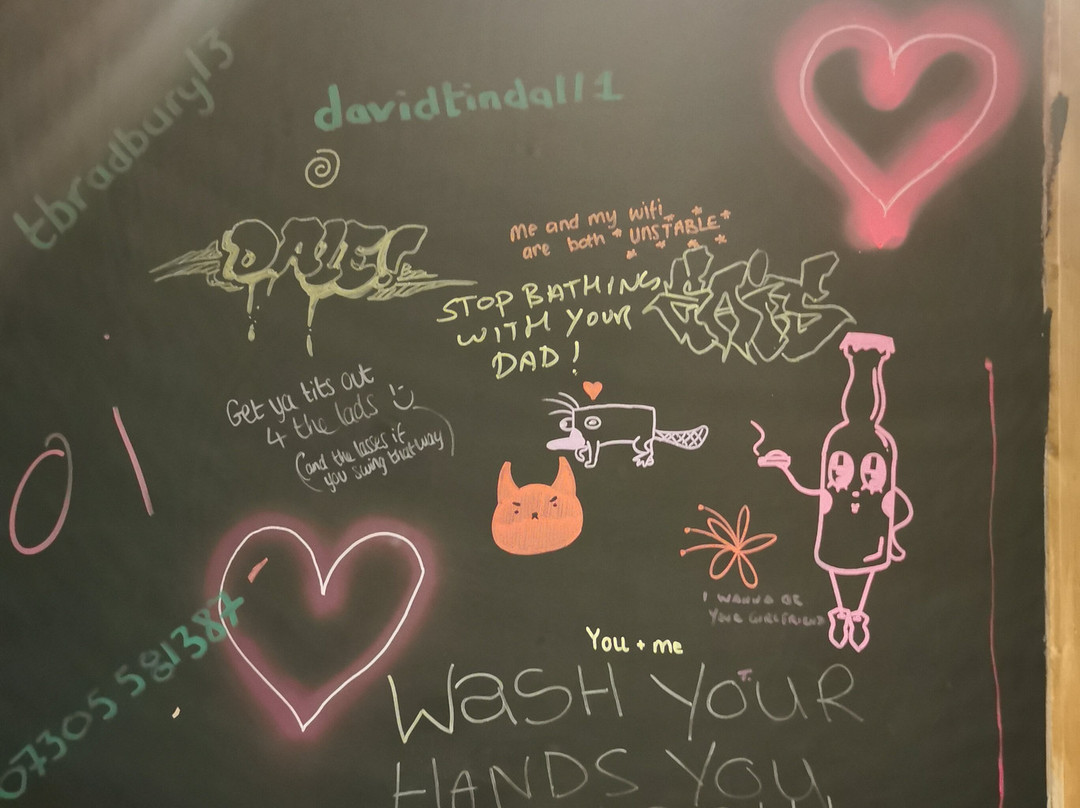 tbradbury13
davidtindall1
DALES
me and my wifi
are both *UNSTABLE*
STOP BATHING
WITH YOUR
DAD!
Get ya tits out
4 the lads
(and the lasses if
you swing that way)
01
I WANNA BE
YOUR GIRLFRIEND
07305 581387
You + me
WaSH YOUR
HANDS YOU